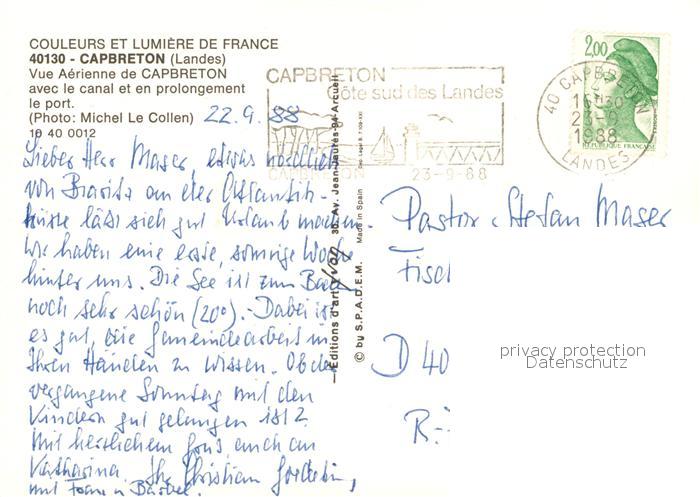 COULEURS ET LUMIÈRE DE FRANCE
40130 - CAPBRETON (Landes)
Vue Aérienne de CAPBRETON
avec le canal et en prolongement
le port.
(Photo: Michel Le Collen)
10 40 0012
22.9.88
Lieber Herr Maser, etwas nördlich
von Biaritz an der Atlantik-
küste läßt sich gut Urlaub machen.
Wir haben eine erste, sonnige Woche
hinter uns. Die See ist zum Baden
noch sehr schön (20°). - Dabei ist
es gut, die Gemeindearbeit in
Ihren Händen zu wissen. Ob der
vergangene Sonntag mit den
Kindern gut gelungen ist?
Mit herzlichem Gruß, auch an
Katharina. Ihr Christian
mit Frau u. Bärbel.
Editions d'art yvon 30, Av. Jean-Jaurès-94-Arcueil
© by S.P.A.D.E.M. Made in Spain
CAPBRETON
Côte sud des Landes
CAPBRETON 23-9-88
40 CAPBRETON
16H30
23-9
1988
LANDES
2,00
REPUBLIQUE FRANÇAISE
Pastor Stefan Maser
Fisc
D 40
R-
privacy protection
Datenschutz